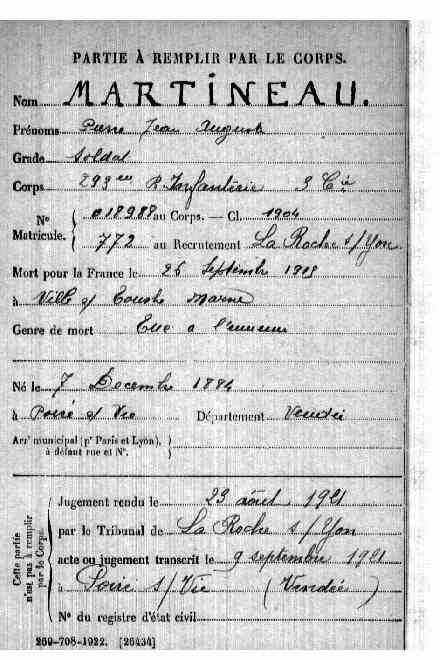 PARTIE À REMPLIR PAR LE CORPS.
Nom MARTINEAU.
Prénoms Pierre Jean Auguste
Grade Soldat
Corps 293e R. Infanterie 3 Cie
N° Matricule. { 018988 au Corps. — Cl. 1904
772 au Recrutement La Roche s/Yon
Mort pour la France le 25 Septembre 1915
à Ville s/ Tourbe Marne
Genre de mort Tué à l'ennemi
Né le 7 Decembre 1884
à Poiré s/ Vie Département Vendée
Arrt municipal (pr Paris et Lyon), à défaut rue et N°. }
Cette partie n'est pas à remplir par le Corps.
Jugement rendu le 23 août 1921
par le Tribunal de La Roche s/Yon
acte ou jugement transcrit le 9 septembre 1921
à Poiré s/Vie (Vendée)
N° du registre d'état civil
269-708-1922. [26434]